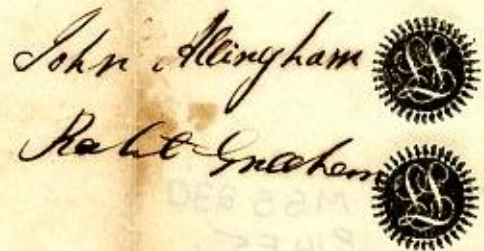 John Allingham
Robt Graham